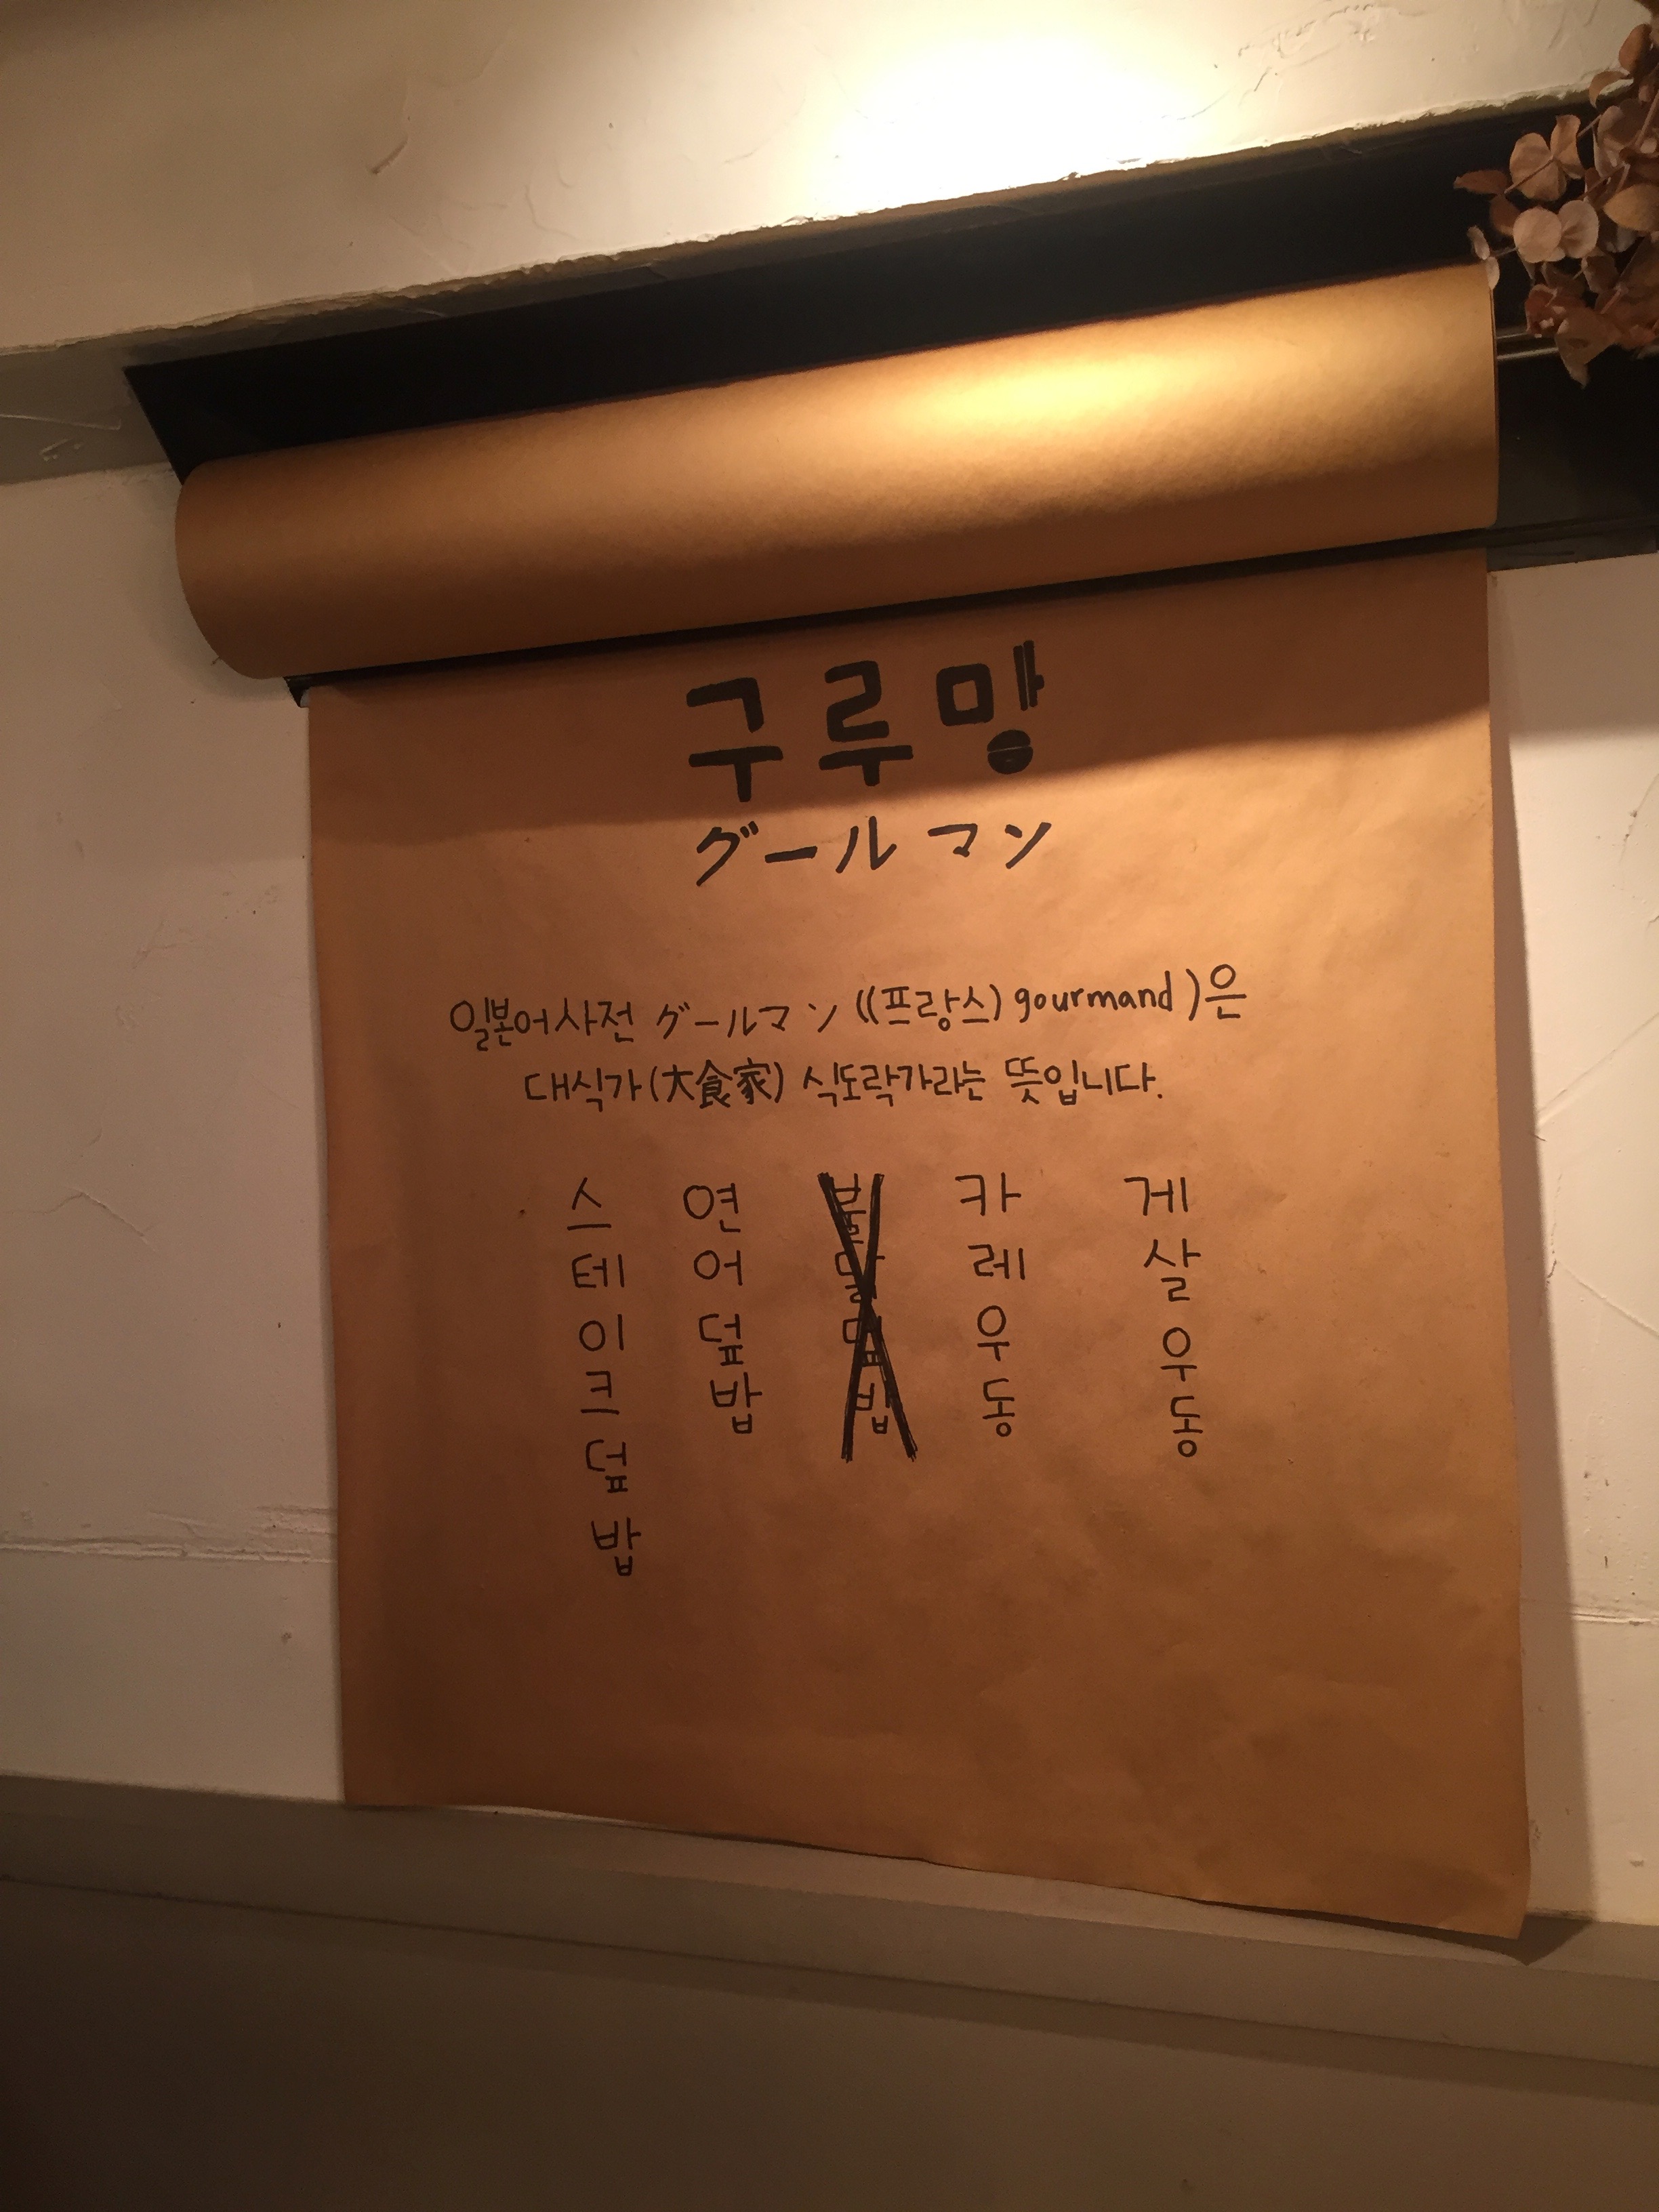 구루망
グールマン
일본어사전 グールマン ((프랑스) gourmand)은
대식가(大食家) 식도락가라는 뜻입니다.
스테이크덮밥
연어덮밥
불닭덮밥
카레우동
게살우동